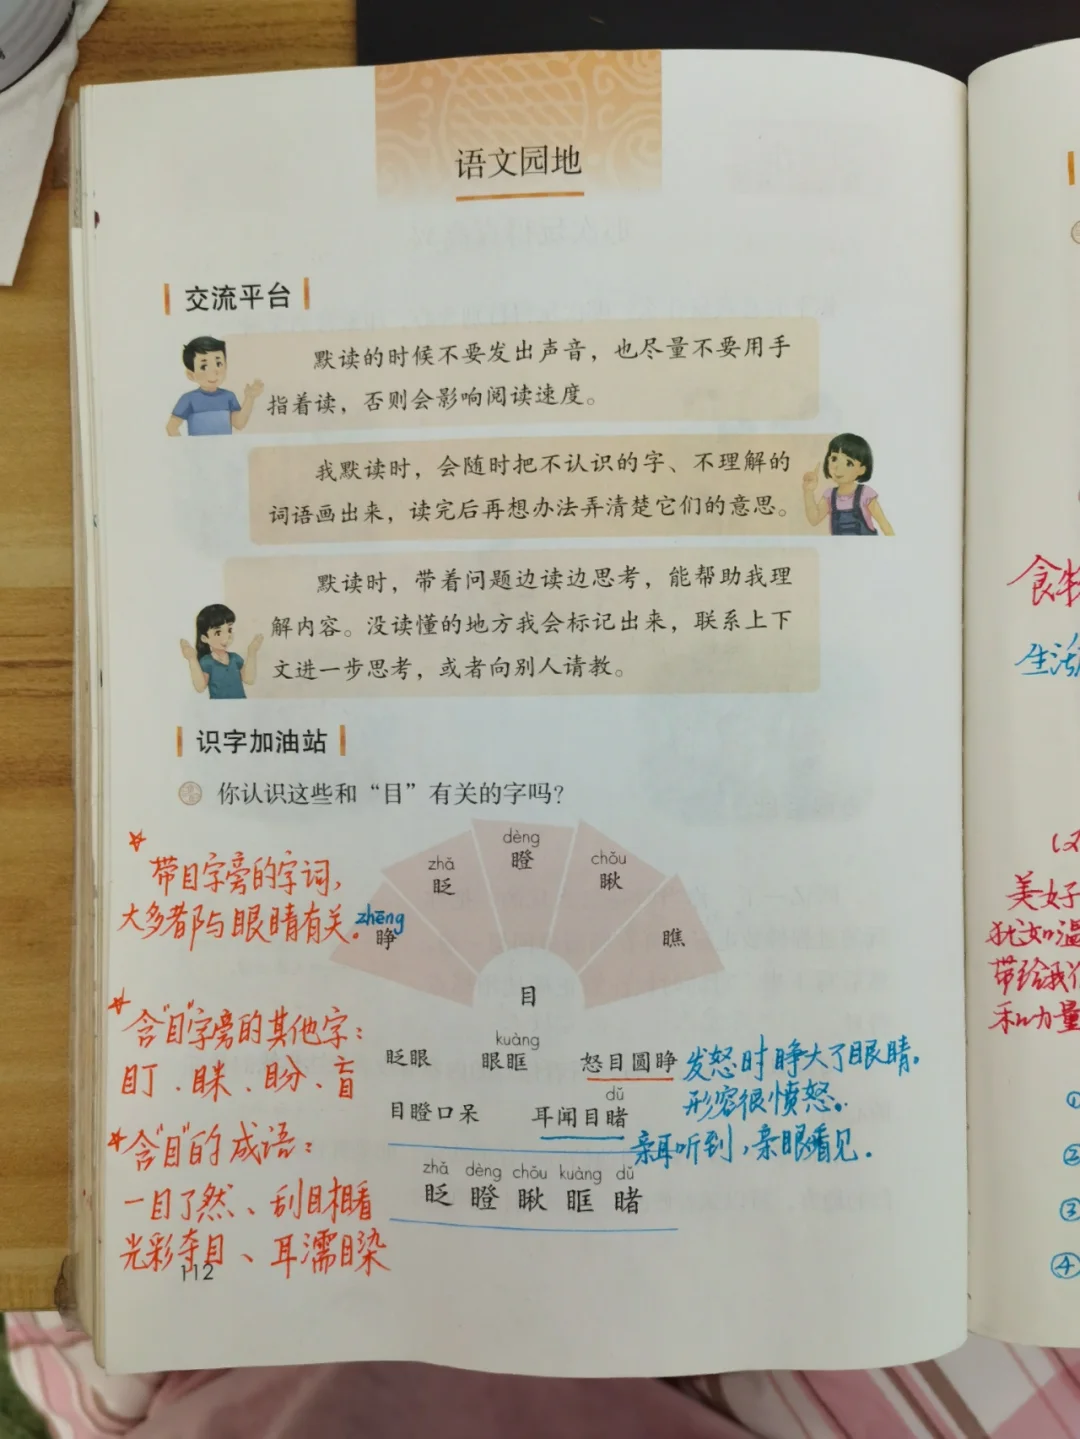 语文园地
交流平台
默读的时候不要发出声音，也尽量不要用手
指着读，否则会影响阅读速度。
我默读时，会随时把不认识的字、不理解的
词语画出来，读完后再想办法弄清楚它们的意思。
默读时，带着问题边读边思考，能帮助我理
解内容。没读懂的地方我会标记出来，联系上下
文进一步思考，或者向别人请教。
识字加油站
你认识这些和“目”有关的字吗？
带目字旁的字词，
大多都与眼睛有关。
zhēng
睁
zhǎ
眨
dèng
瞪
chǒu
瞅
瞧
目
含“目”字旁的其他字：
盯、眯、盼、盲
kuàng
眨眼 眼眶 怒目圆睁
发怒时睁大了眼睛。
形容很愤怒。
dǔ
目瞪口呆 耳闻目睹
亲耳听到，亲眼看见.
含“目”的成语：
一目了然、刮目相看
光彩夺目、耳濡目染
zhǎ dèng chǒu kuàng dǔ
眨 瞪 瞅 眶 睹
112
食物
生活
汉
美好
犹如温
带给我们
和力量
①
②
③
④